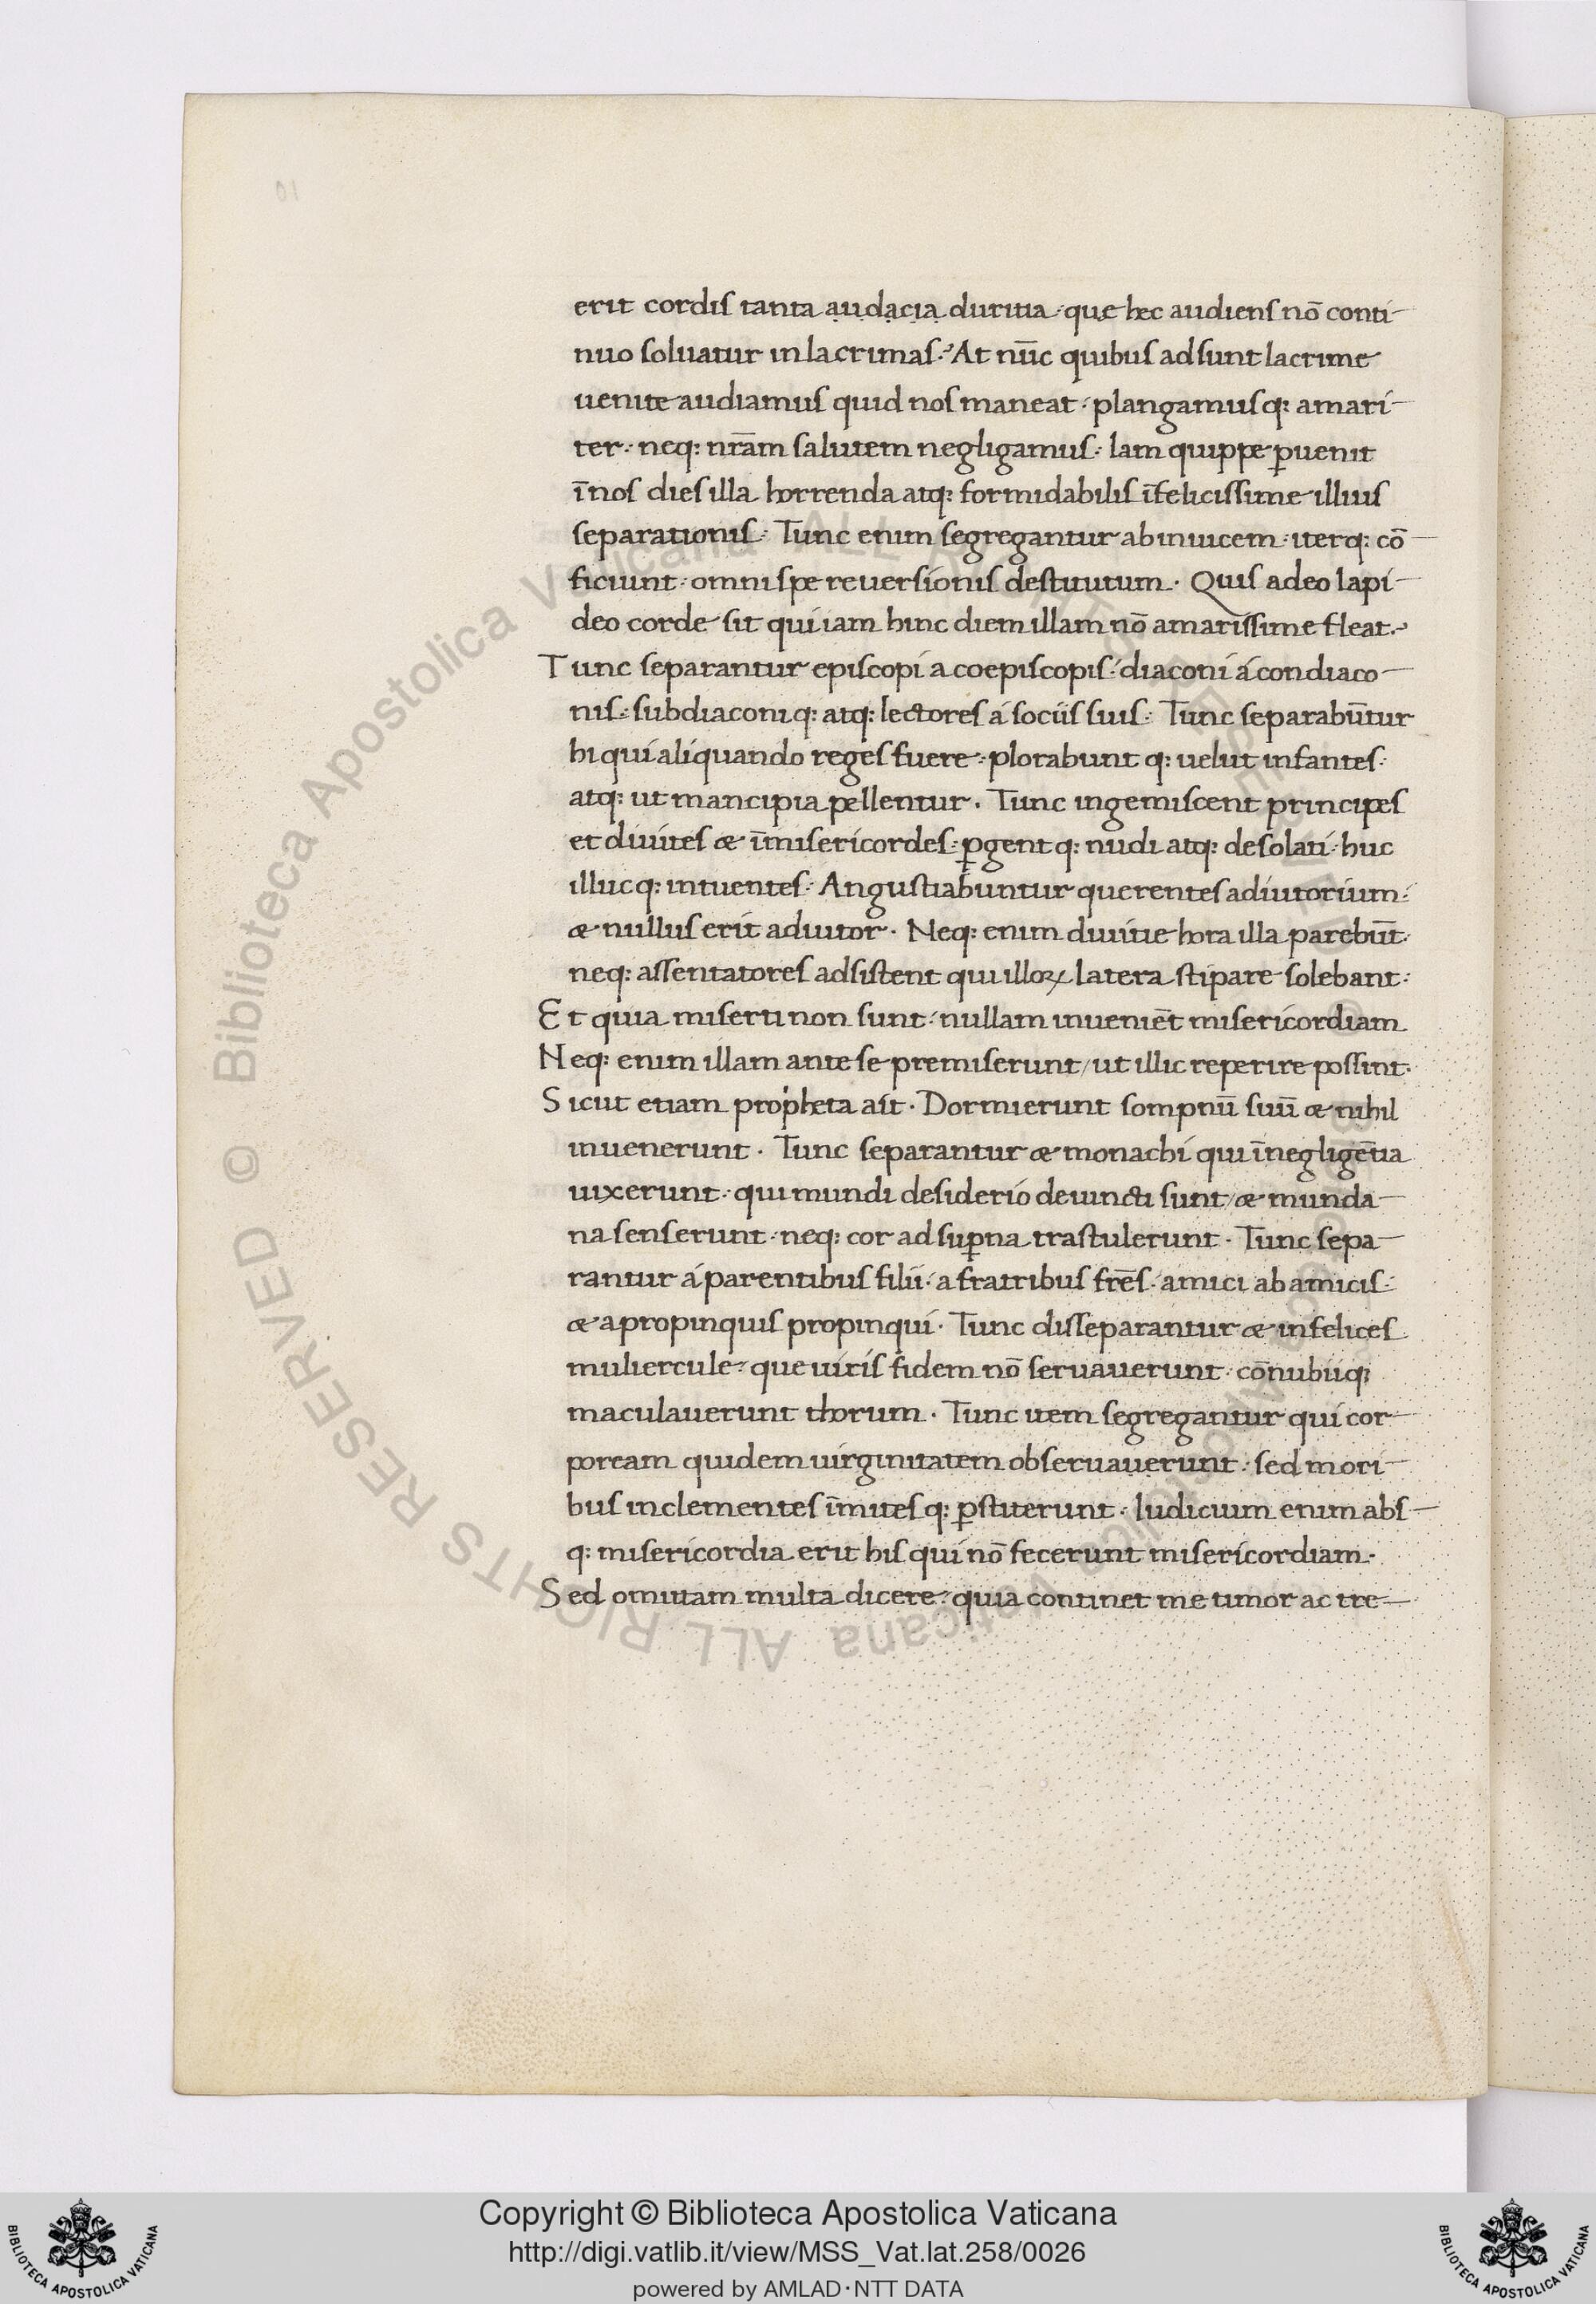 erit cordis tanta audacia duritia: que hec audiens nō conti-
nuo soluatur in lacrimas? At nūc quibus adsunt lacrime
uenite audiamus quid nos maneat: plangamusq; amari-
ter: neq; nr̄am salutem negligamus: Iam quippe ꝑuenit
ī nos dies illa horrenda atq; formidabilis īfelicissime illius
separationis: Tunc enim segregantur ab inuicem: iterq; cō-
ficiunt: omni spe reuersionis destitutum. Quis adeo lapi-
deo corde sit qui iam hinc diem illam nō amarissime fleat?
Tunc separantur episcopi a coepiscopis: diaconi á condiaco-
nis: subdiaconiq; atq; lectores á sociis suis: Tunc separabūtur
hi qui aliquando reges fuere: plorabuntq; uelut infantes:
atq; ut mancipia pellentur. Tunc ingemiscent principes
et diuites æ īmisericordes: ꝑgentq; nudi atq; desolati: huc
illucq; intuentes: Angustiabuntur querentes adiutorium:
æ nullus erit adiutor. Neq; enim diuitie hora illa parebūt:
neq; assentatores adsistent qui illoꝝ latera stipare solebant:
Et quia miserti non sunt: nullam inueniēt misericordiam
Neq; enim illam ante se premiserunt/ ut illic reperire possint:
Sicut etiam propheta ait. Dormierunt sompnū suū æ nihil
inuenerunt. Tunc separantur æ monachi qui ī negligētia
uixerunt: qui mundi desiderio deuincti sunt/ æ munda-
na senserunt: neq; cor ad suꝑna trastulerunt. Tunc sepa-
rantur á parentibus filii: a fratribus frēs: amici ab amicis:
æ a propinquis propinqui. Tunc disseparantur æ infelices
muliercule: que uiris fidem nō seruauerunt: cōnubiiq;
maculauerunt thorum. Tunc item segregantur qui cor-
poream quidem uirginitatem obseruauerunt: sed mori-
bus inclementes īmitesq; ꝑstiterunt. Iudicium enim abs-
q; misericordia erit his qui nō fecerunt misericordiam.
Sed omittam multa dicere: quia continet me timor ac tre-
Copyright © Biblioteca Apostolica Vaticana
http://digi.vatlib.it/view/MSS_Vat.lat.258/0026
powered by AMLAD·NTT DATA